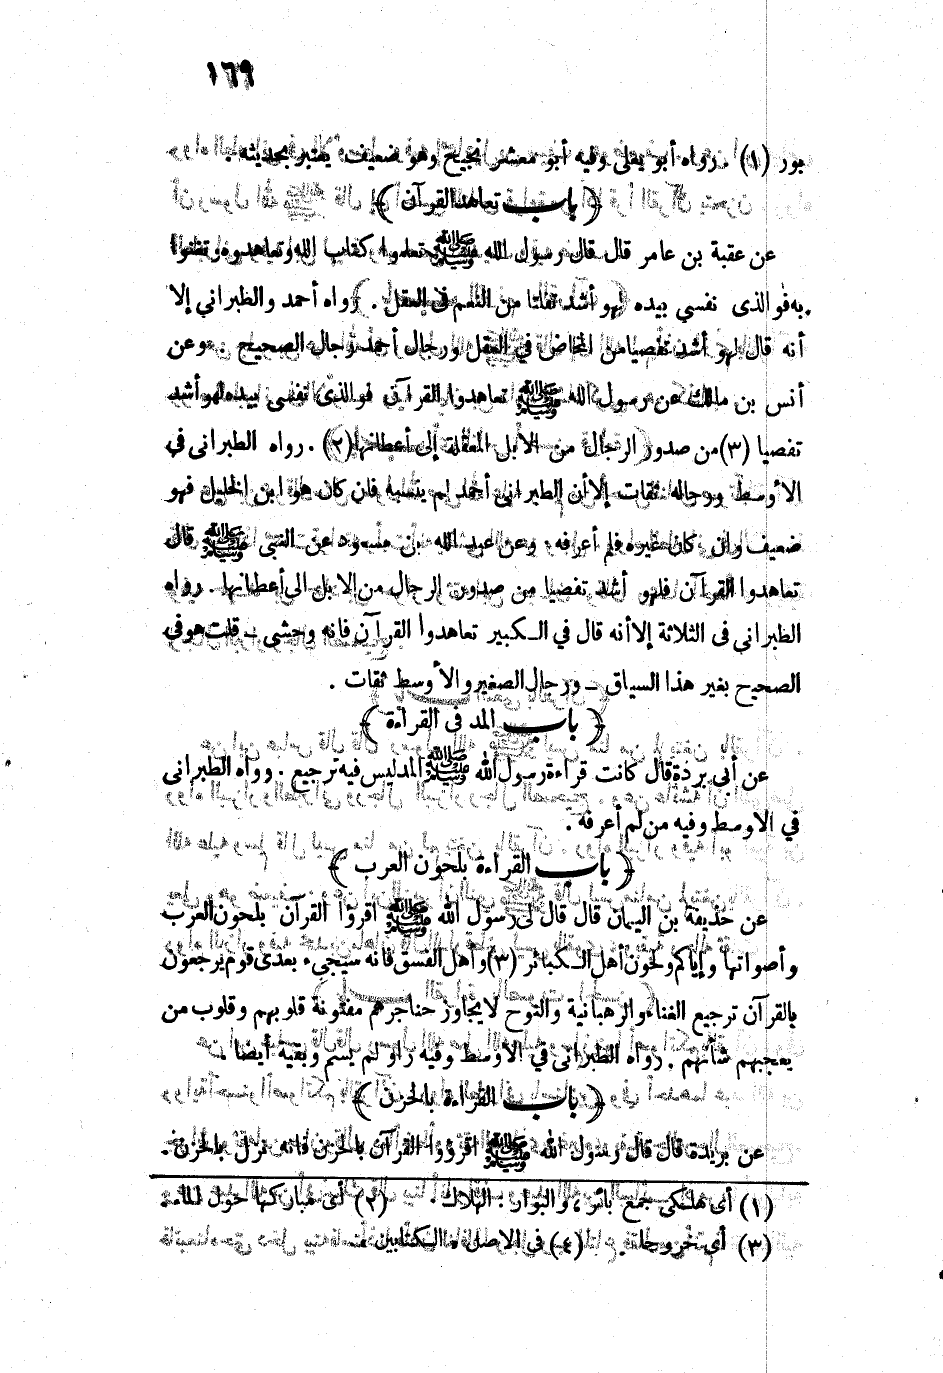 ١٦٩
بور (١) . رواه أبو يعلى وفيه أبو معشر نجيح وهو ضعيف يعتبر بحديثه .
﴿ باب تعاهد القرآن ﴾
عن عقبة بن عامر قال قال رسول الله ﷺ تعلموا كتاب الله وتعاهدوه وتغنوا
به فوالذى نفسي بيده لهو أشد تفلتا من النعم في العقل . رواه أحمد والطبراني إلا
أنه قال لهو أشد تفصيا من المخاض في العقل ورجال أحمد رجال الصحيح . وعن
أنس بن مالك عن رسول الله ﷺ تعاهدوا القرآن فوالذى نفسى بيده لهو أشد
تفصيا (٣) من صدور الرجال من الأبل المعقلة إلى أعطانها (٢) . رواه الطبرانى في
الأوسط ورجاله ثقات إلا أن الطبرانى أحمد لم ينسبه فان كان هو ابن الخليل فهو
ضعيف وان كان غيره فلم أعرفه . وعن عبد الله بن مسعود عن النبى ﷺ قال
تعاهدوا القرآن فلهو أشد تفصيا من صدور الرجال من الابل الى أعطانها . رواه
الطبرانى فى الثلاثة إلا أنه قال في الكبير تعاهدوا القرآن فانه وحشى ــ قلت هو في
الصحيح بغير هذا السياق ــ ورجال الصغير والأوسط ثقات .
﴿ باب المد فى القراءة ﴾
عن أبى بردة قال كانت قراءة رسول الله ﷺ المد ليس فيه ترجيع . رواه الطبرانى
في الاوسط وفيه من لم أعرفه .
﴿ باب القراءة بلحون العرب ﴾
عن حذيفة بن اليمان قال قال لى رسول الله ﷺ اقرؤا القرآن بلحون العرب
وأصواتها وإياكم ولحون أهل الكبائر (٣) وأهل الفسق فانه سيجيء بعدى قوم يرجعون
بالقرآن ترجيع الغناء والرهبانية والنوح لا يجاوز حناجرهم مفتونة قلوبهم وقلوب من
يعجبهم شأنهم . رواه الطبرانى في الأوسط وفيه راو لم يسم وبقية أيضا .
﴿ باب القراءة بالحزن ﴾
عن بريدة قال قال رسول الله ﷺ اقرؤوا القرآن بالحزن فانه نزل بالحزن .
(١) أى هلكى جمع بائر ، والبوار : الهلاك . (٢) أى مباركها حول الماء .
(٣) أي خروجا . (٤) في الاصل « الكتابين »